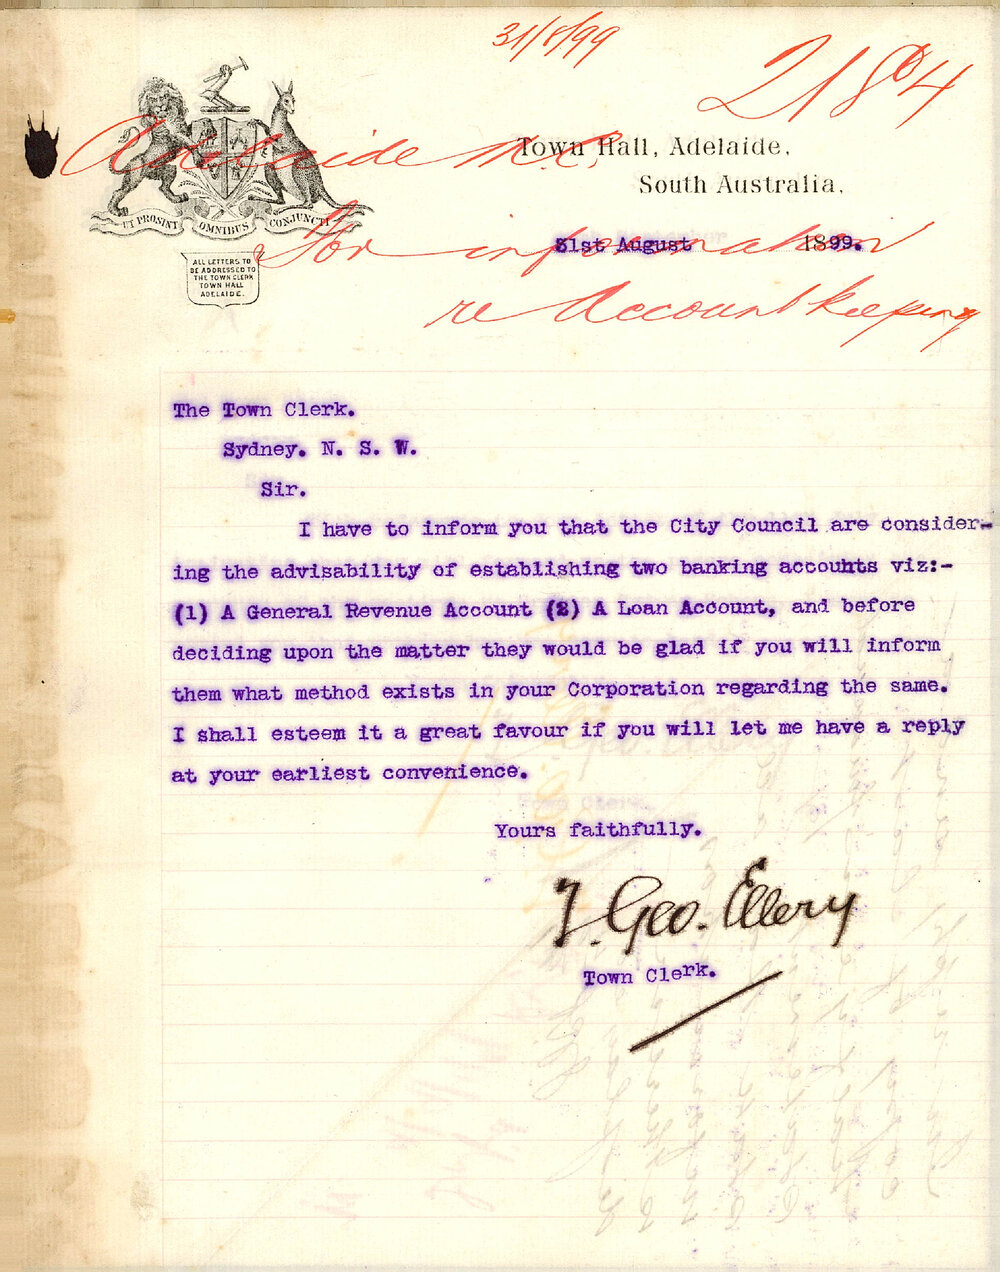 31/8/99
2184
Adelaide M.C.
Town Hall, Adelaide,
South Australia,
UT PROSINT OMNIBUS CONJUNCTI
For information
31st August 1899.
ALL LETTERS TO
BE ADDRESSED TO
THE TOWN CLERK
TOWN HALL
ADELAIDE.
re Account keeping
The Town Clerk.
Sydney. N. S. W.
Sir.
I have to inform you that the City Council are consider-
ing the advisability of establishing two banking accounts viz:-
(1) A General Revenue Account (2) A Loan Account, and before
deciding upon the matter they would be glad if you will inform
them what method exists in your Corporation regarding the same.
I shall esteem it a great favour if you will let me have a reply
at your earliest convenience.
Yours faithfully.
T. Geo. Ellery
Town Clerk.